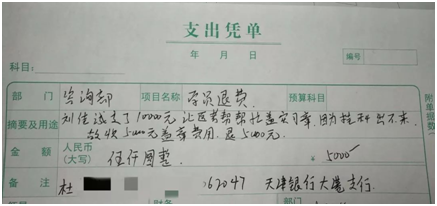 支出凭单
年 月 日
编号
科目：
部门 咨询部 项目名称 学员退费 预算科目
摘要及用途 刘佳诚支了10000元 让区长帮帮忙盖实习章，因为挂科出不来，
故收5000元盖章费用，退5000元。
金额 人民币(大写) 伍仟圆整 ¥ 5000
备注 杜 62047 天津银行大港支行
附单据数
财务
部门